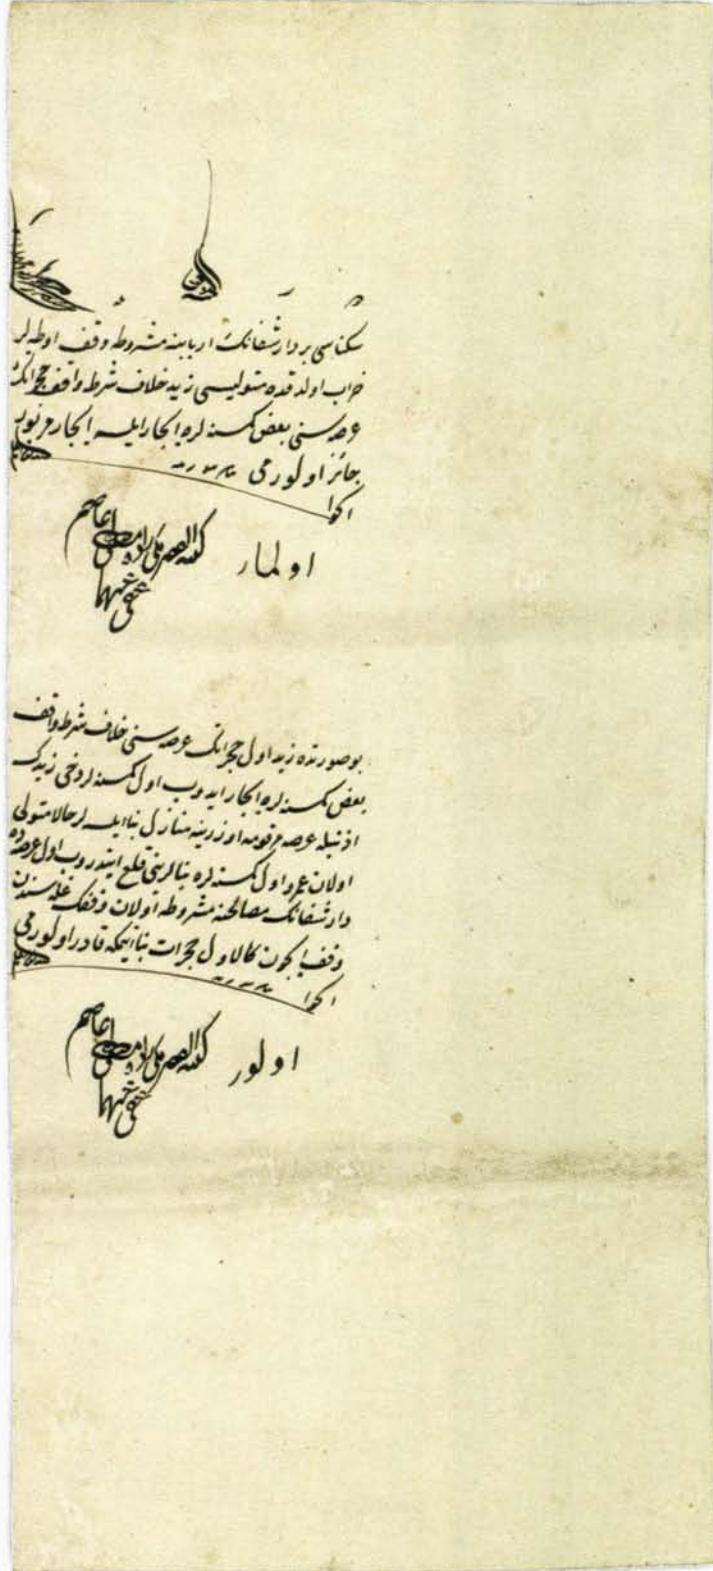 سکناسی بر دار شفانك اربابنه مشروط وقف اوطه لر
خراب اولدقده متولیسی زید خلاف شرط واقف حجراتك
عرصه سنی بعض کسنه لره ایجار ایلسه ایجار مزبور
جائز اولورمی
الجواب
اولماز
بوصورتده زید اول حجراتك عرصه سنی خلاف شرط واقف
بعض کسنه لره ایجار ایدوب اول کسنه لر دخی زیدك
اذنیله عرصه مرقومه اوزرینه منازل بنا ایلسه لر حالا متولی
اولان عمرو اول کسنه لره بنالرینی قلع ایتدروب اول عرصه ده
دار شفانك مصالحنه مشروطه اولان وقفك غله سندن
وقف ایچون کالاول حجرات بنا ایتمکه قادر اولورمی
الجواب
اولور